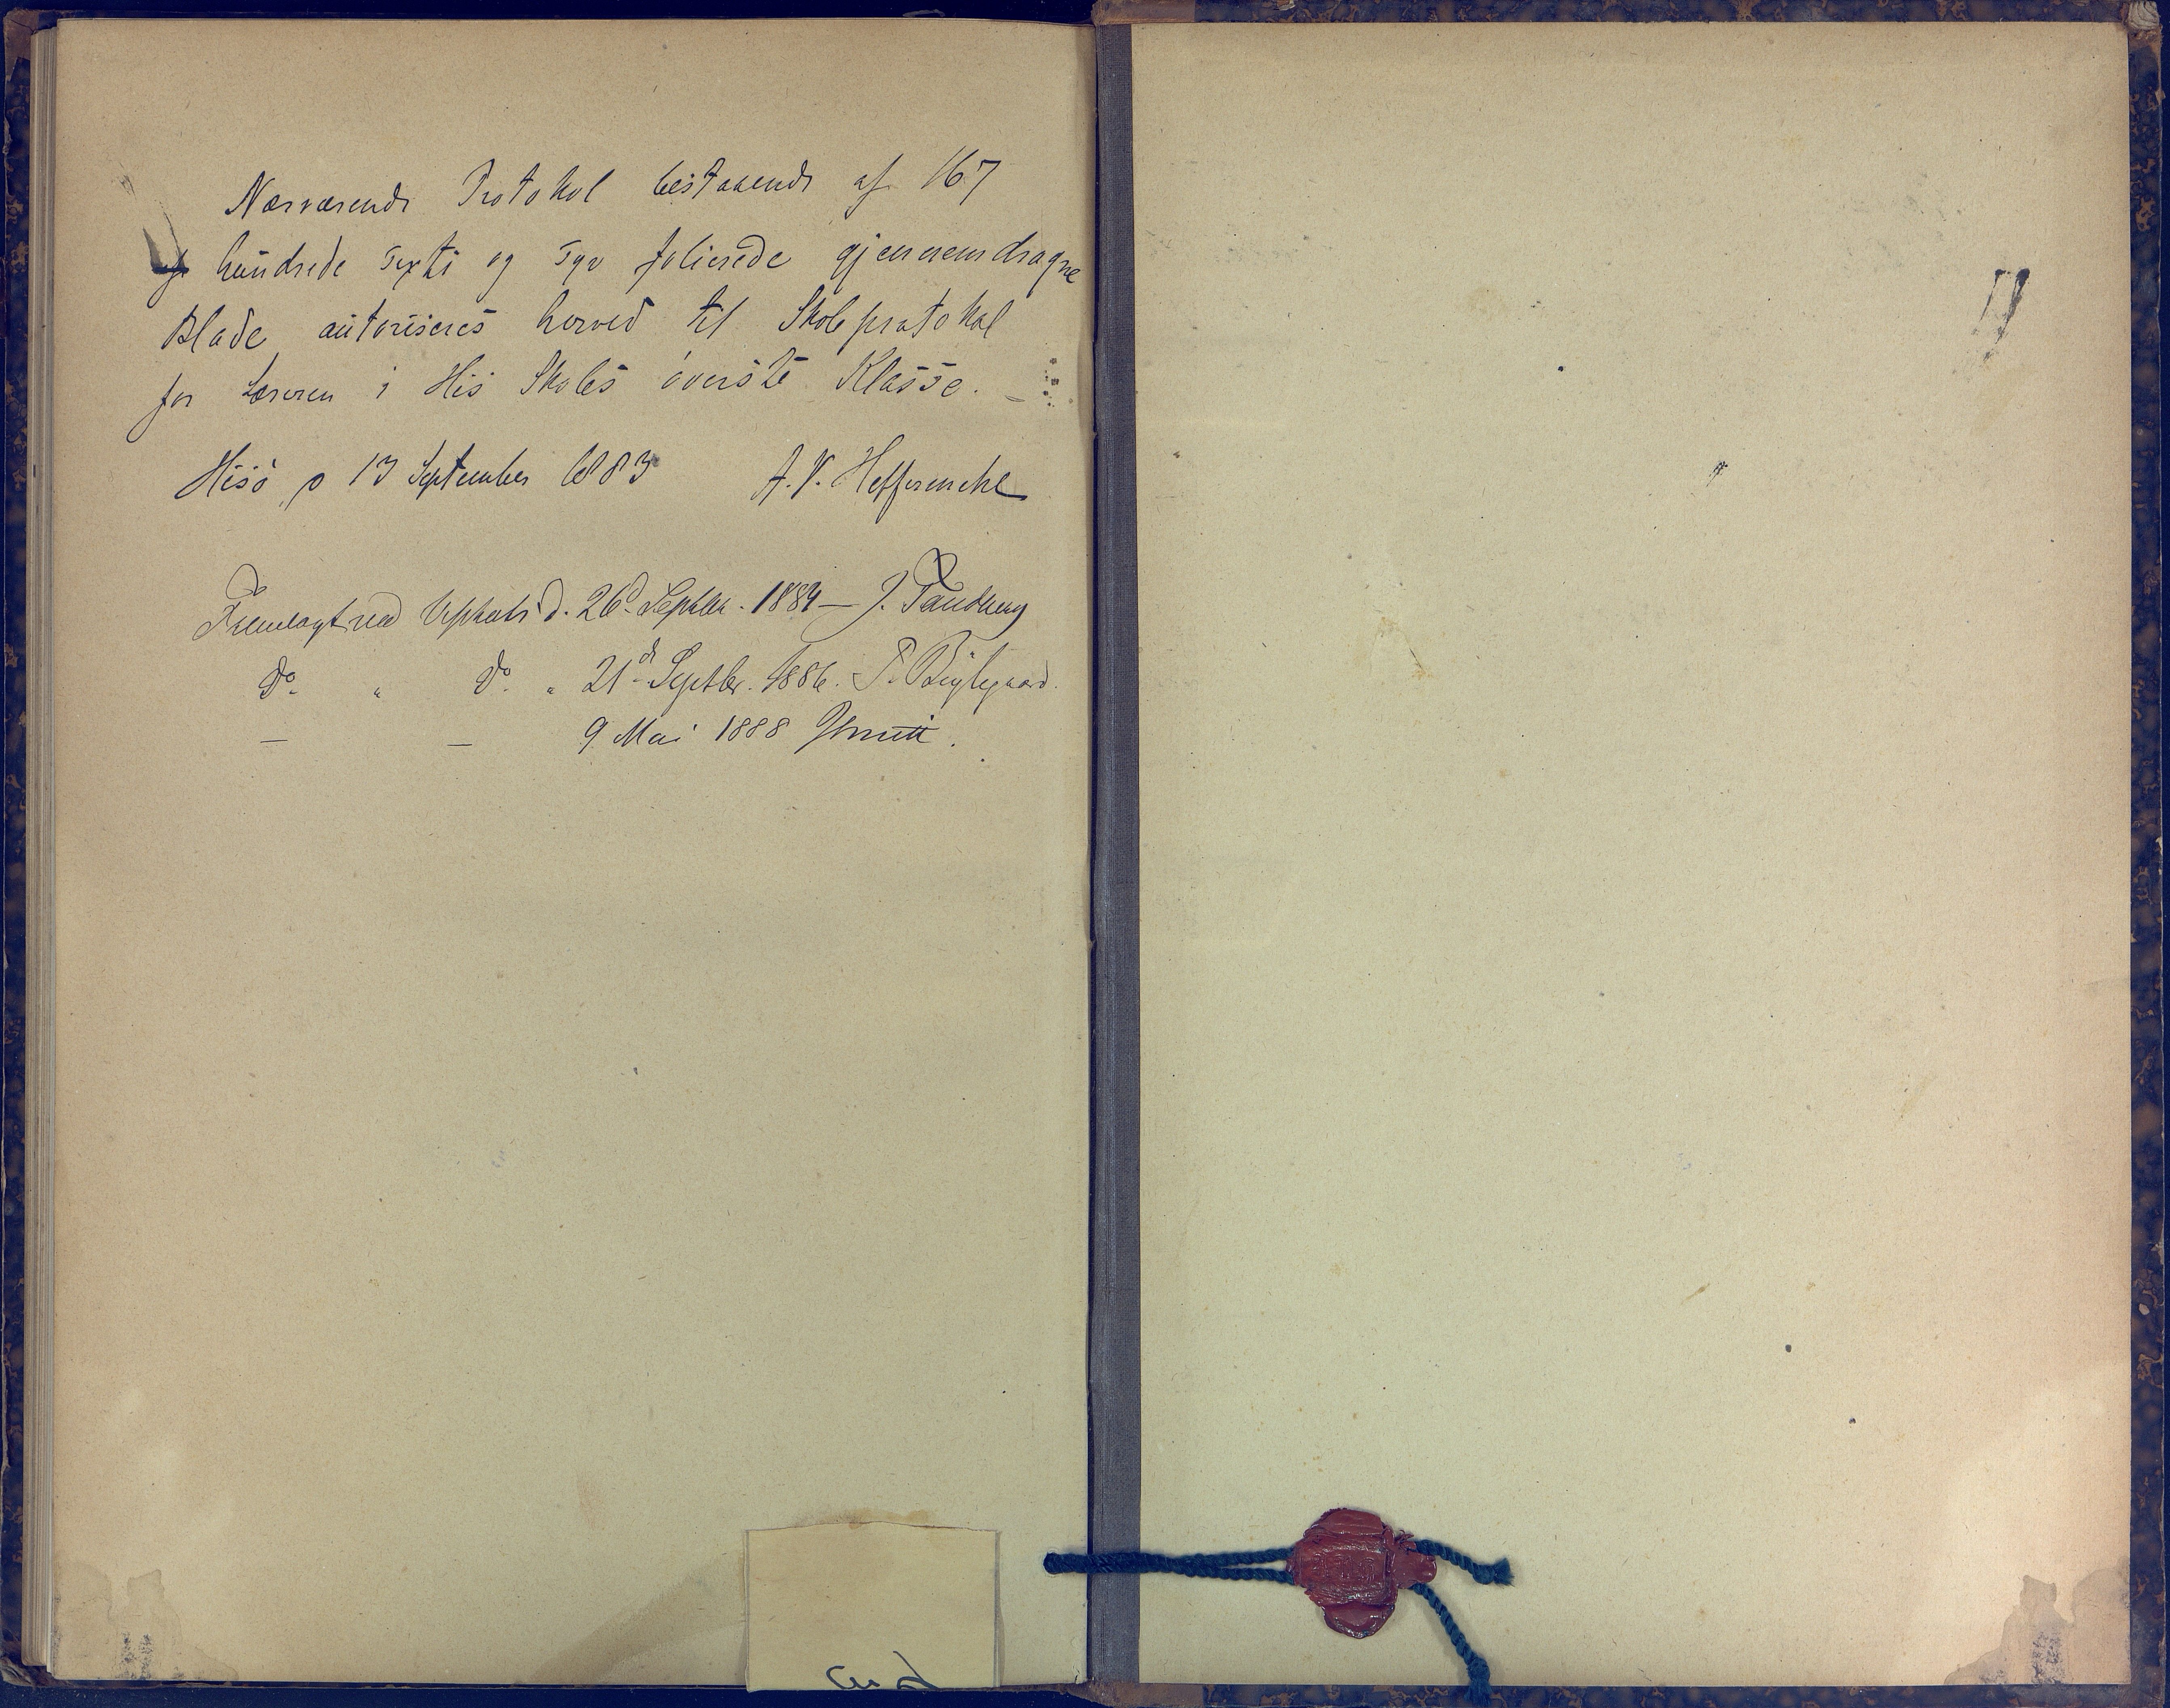 Nærværende Protokol bestaaende af 167
hundrede sexti og syv folierede gjennemdragne
Blade autoriseres herved til Skoleprotokol
for Læreren i His Skoles øverste Klasse. –
Hisö 13 September 1883 A. V. Heffermehl
Fremlagt ved d. 26d Septbr. 1884 – J.
Do " Do " 21de Septbr. 1886.
– – 9 Mai 1888